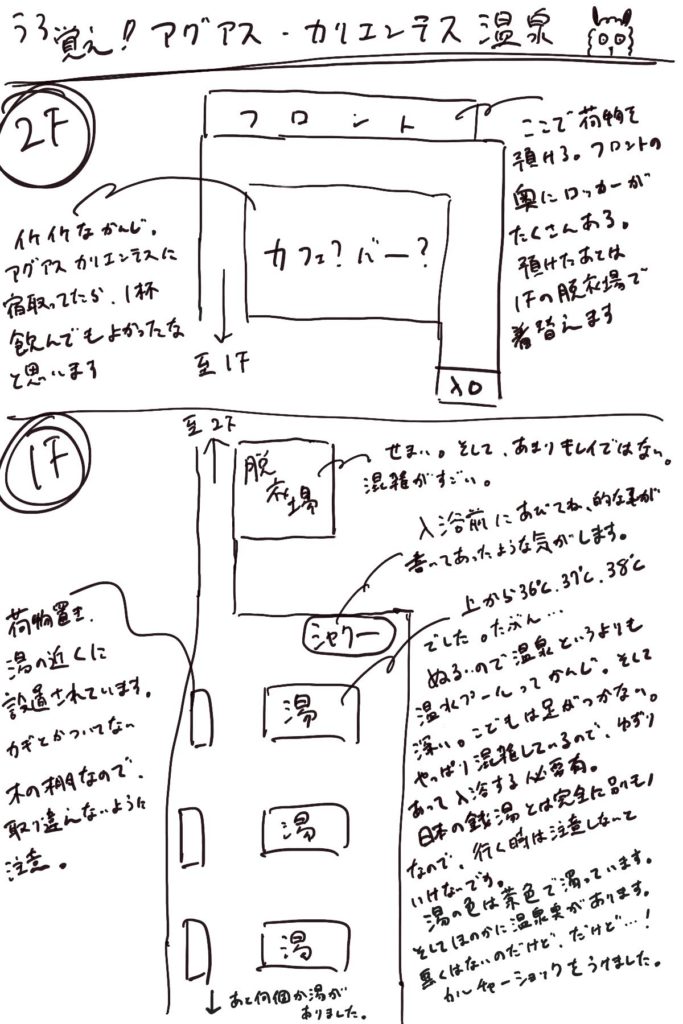 うろ覚え！アグアス・カリエンテス温泉
2F
フロント
ここで荷物を
預ける。フロントの
奥にロッカーが
たくさんある。
預けたあとは
1Fの脱衣場で
着替えます
イケイケなかんじ。
アグアスカリエンテスに
宿取ってたら、1杯
飲んでもよかったな
と思います
カフェ？バー？
至1F
入口
1F
至2F
脱衣場
せまい。そして、あまりキレイではない。
混雑がすごい。
入浴前にあびてね、的な事が
書いてあったような気がします。
シャワー
上から36℃、37℃、38℃
でした。たぶん…
ぬるいので温泉というよりも
温水プールってかんじ。そして
深い。こどもは足がつかない。
やっぱり混雑しているので、ゆずり
あって入浴する必要有。
日本の銭湯とは完全に別モノ
なので、行く時は注意しないと
いけないです。
湯の色は茶色で濁っています。
そしてほのかに温泉臭があります。
悪くはないのだけど、だけど…！
カルチャーショックをうけました。
荷物置き、
湯の近くに
設置されています。
カギとかついてない
木の棚なので、
取り違えないように
注意。
湯
湯
湯
あと何個か湯が
ありました。